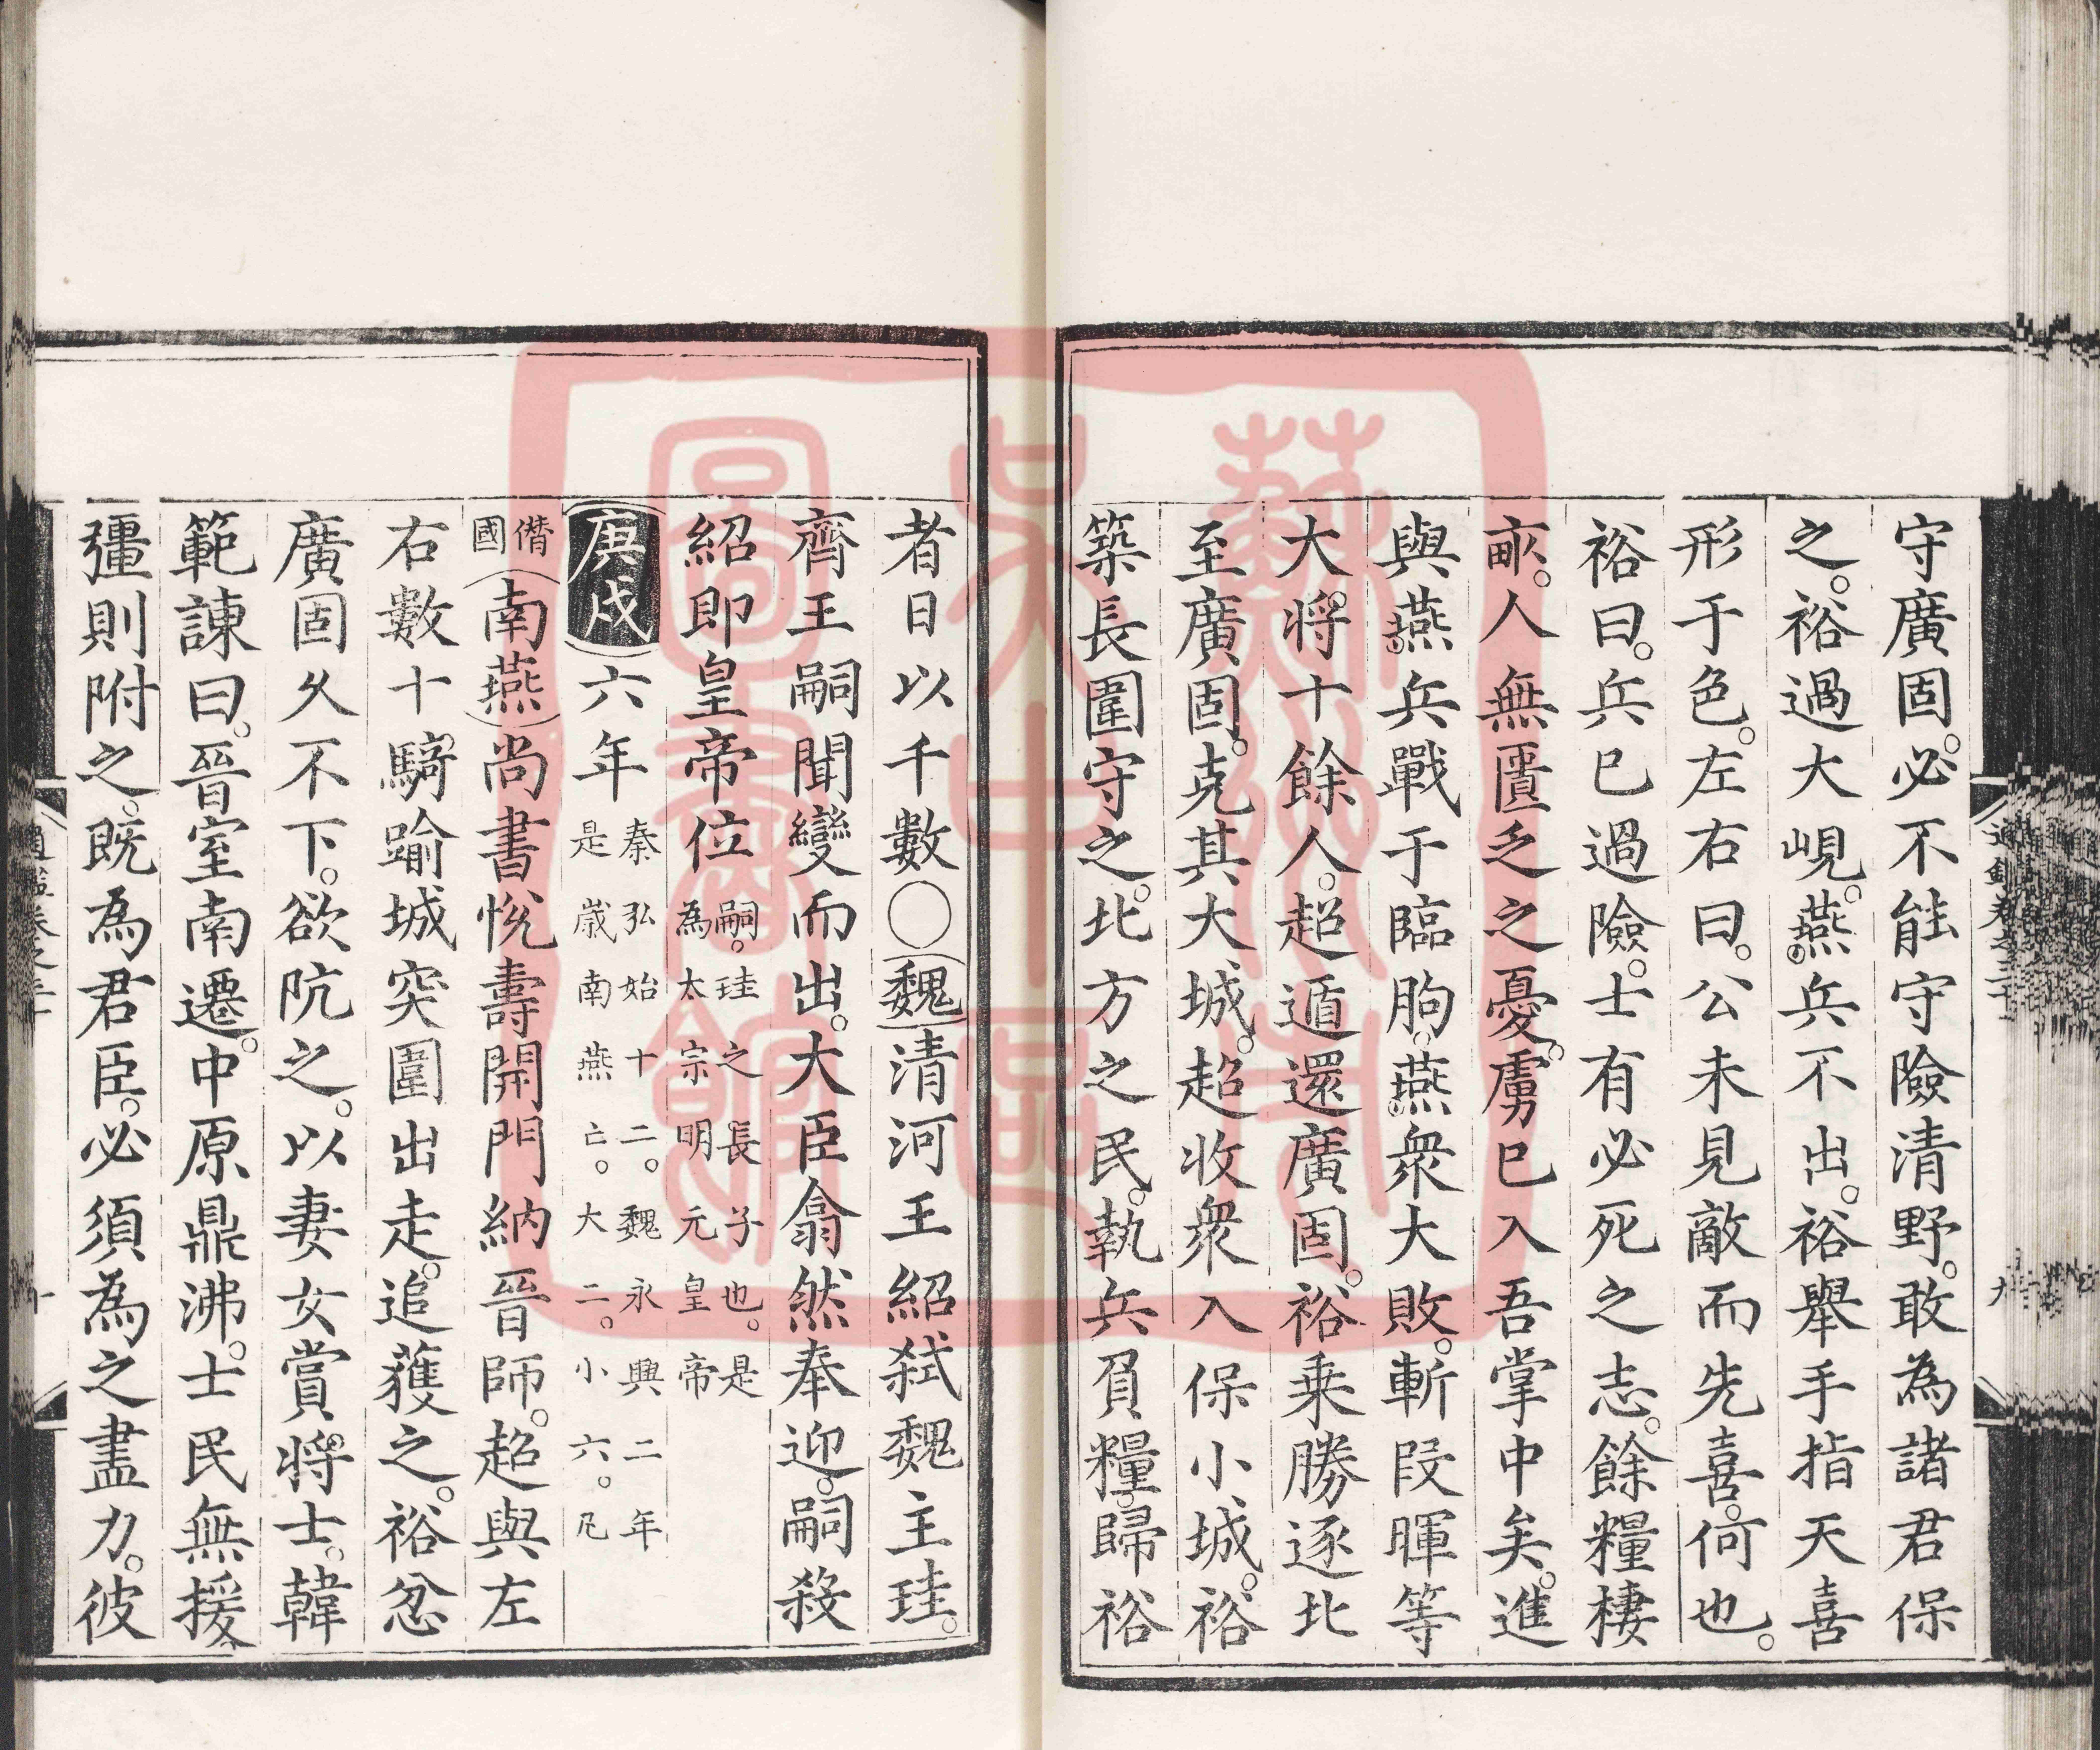 守廣固。必不能守險清野。敢為諸君保
之。裕過大峴。燕兵不出。裕舉手指天喜
形于色。左右曰。公未見敵而先喜。何也。
裕曰。兵已過險。士有必死之志。餘糧棲
畝。人無匱乏之憂。虜已入吾掌中矣。進
與燕兵戰于臨朐。燕衆大敗。斬段暉等
大將十餘人。超遁還廣固。裕乗勝逐北
至廣固。克其大城。超收衆入保小城。裕
築長圍守之。北方之民。執兵負糧。歸裕
者日以千數○魏清河王紹弑魏主珪。
齊王嗣聞變而出。大臣翕然奉迎。嗣殺
紹即皇帝位嗣。珪之長子也。是
為太宗明元皇帝
庚戌六年秦弘始十二。魏永興二年
是歲南燕亡。大二。小六。凡
僭
國南燕尚書悅壽開門納晉師。超與左
右數十騎踰城突圍出走。追獲之。裕忿
廣固久不下。欲阬之。以妻女賞將士。韓
範諫曰。晉室南遷。中原鼎沸。士民無援
彊則附之。既為君臣。必須為之盡力。彼
通鑑卷之二十
九
蘇州
吴中區
圖書館